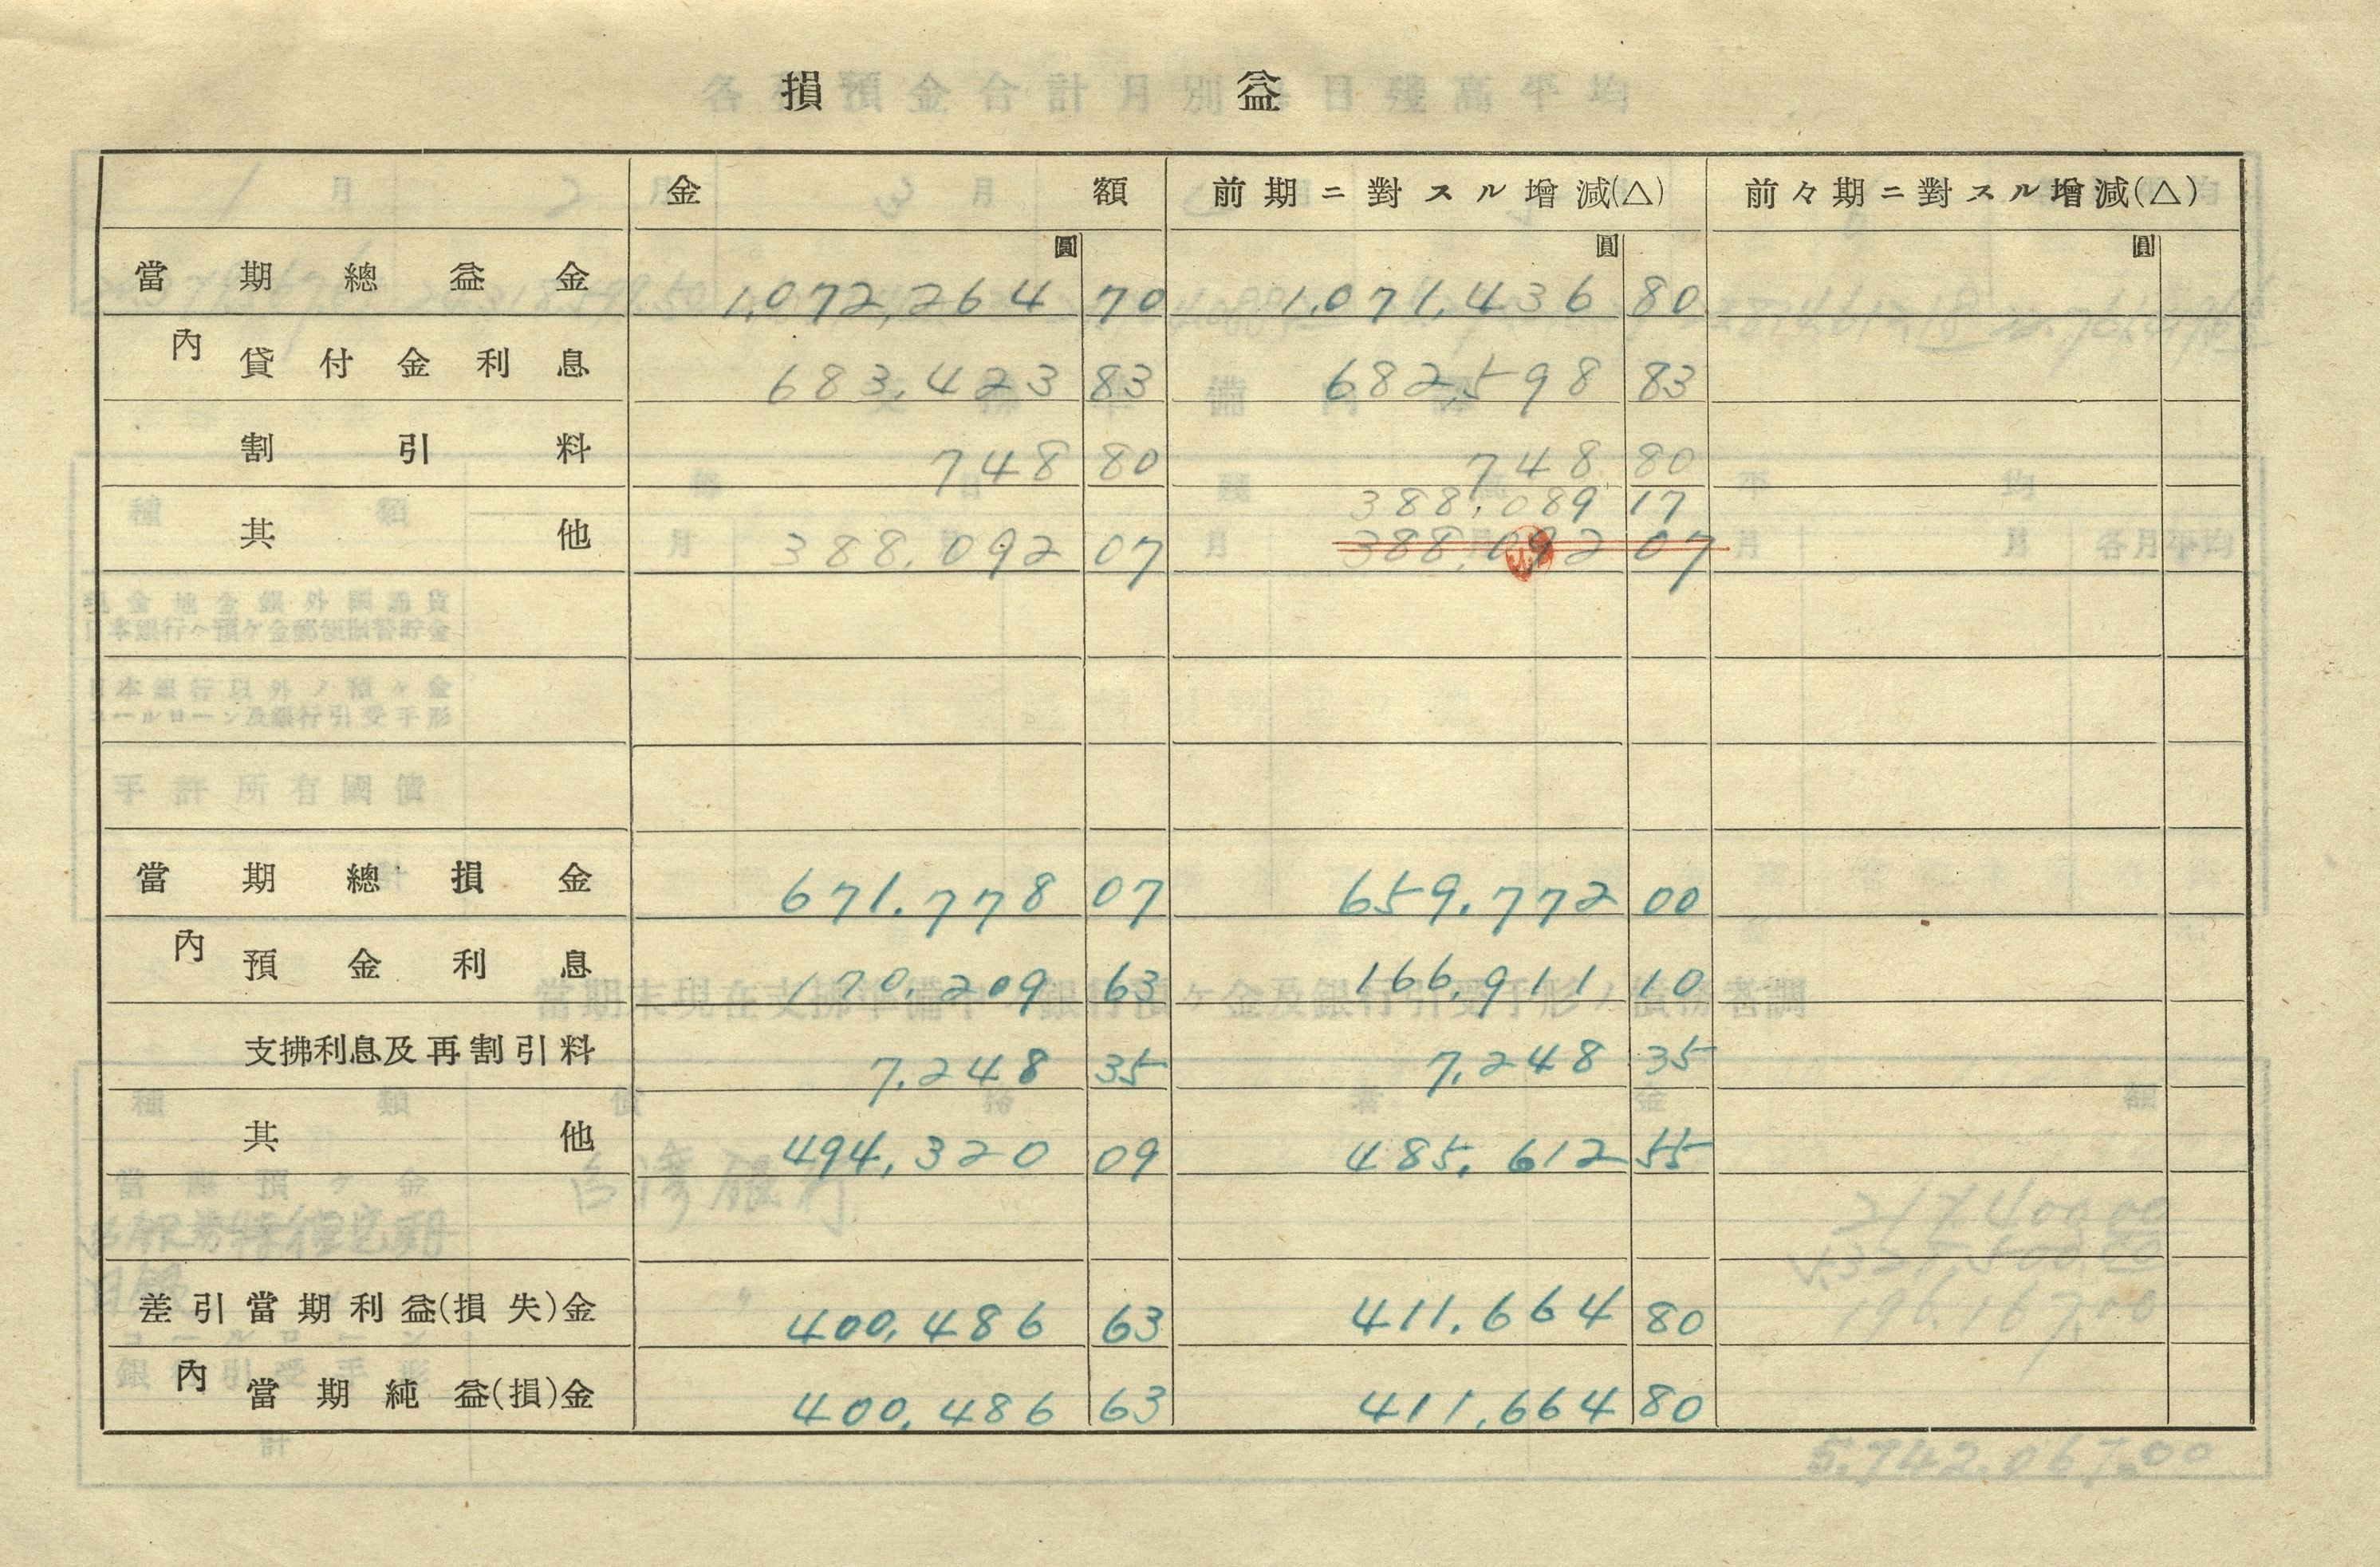 損益
金額 前期ニ對スル增減(△) 前々期ニ對スル增減(△)
圓 圓 圓
當期總益金 1,072,264 70 1,071,436 80
內 貸付金利息 683,423 83 682,598 83
割引料 748 80 748 80
388,089 17
其他 388,092 07 388,092 07
當期總損金 671,778 07 659,772 00
內 預金利息 170,209 63 166,911 10
支拂利息及再割引料 7,248 35 7,248 35
其他 494,320 09 485,612 55
差引當期利益(損失)金 400,486 63 411,664 80
內 當期純益(損)金 400,486 63 411,664 80